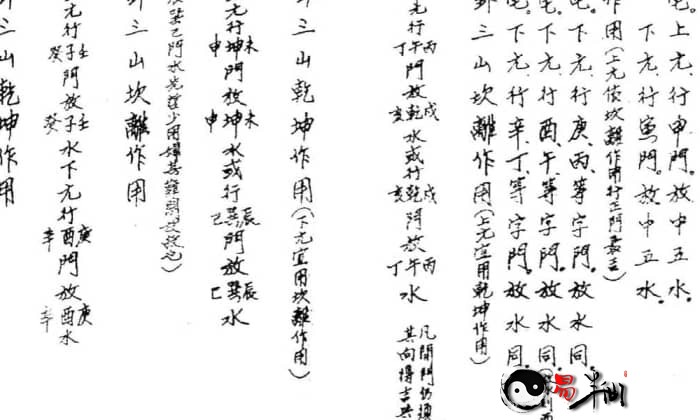 宅上元行申門。放中五水。
下元行寅門。放中五水。
作用(上元依坎離作用行正門最吉)
宅。下元。行庚、丙、等字門。放水同。
宅。下元。行酉、午、等字門。放水同。
宅。下元。行辛、丁、等字門。放水同。
卦三山坎離作用(上元宜用乾坤作用)
凡開門仍須
其向得吉
元行丙午丁門放戌乾亥水或行戌乾亥門放丙午丁水
卦三山乾坤作用(下元宜用坎離作用)
元行未坤申門放未坤申水或行辰巽巳門放辰巽巳水
卦三山坎離作用
元行壬子癸門放壬子癸水下元行庚酉辛門放庚酉辛水
卦三山乾坤作用
易半仙